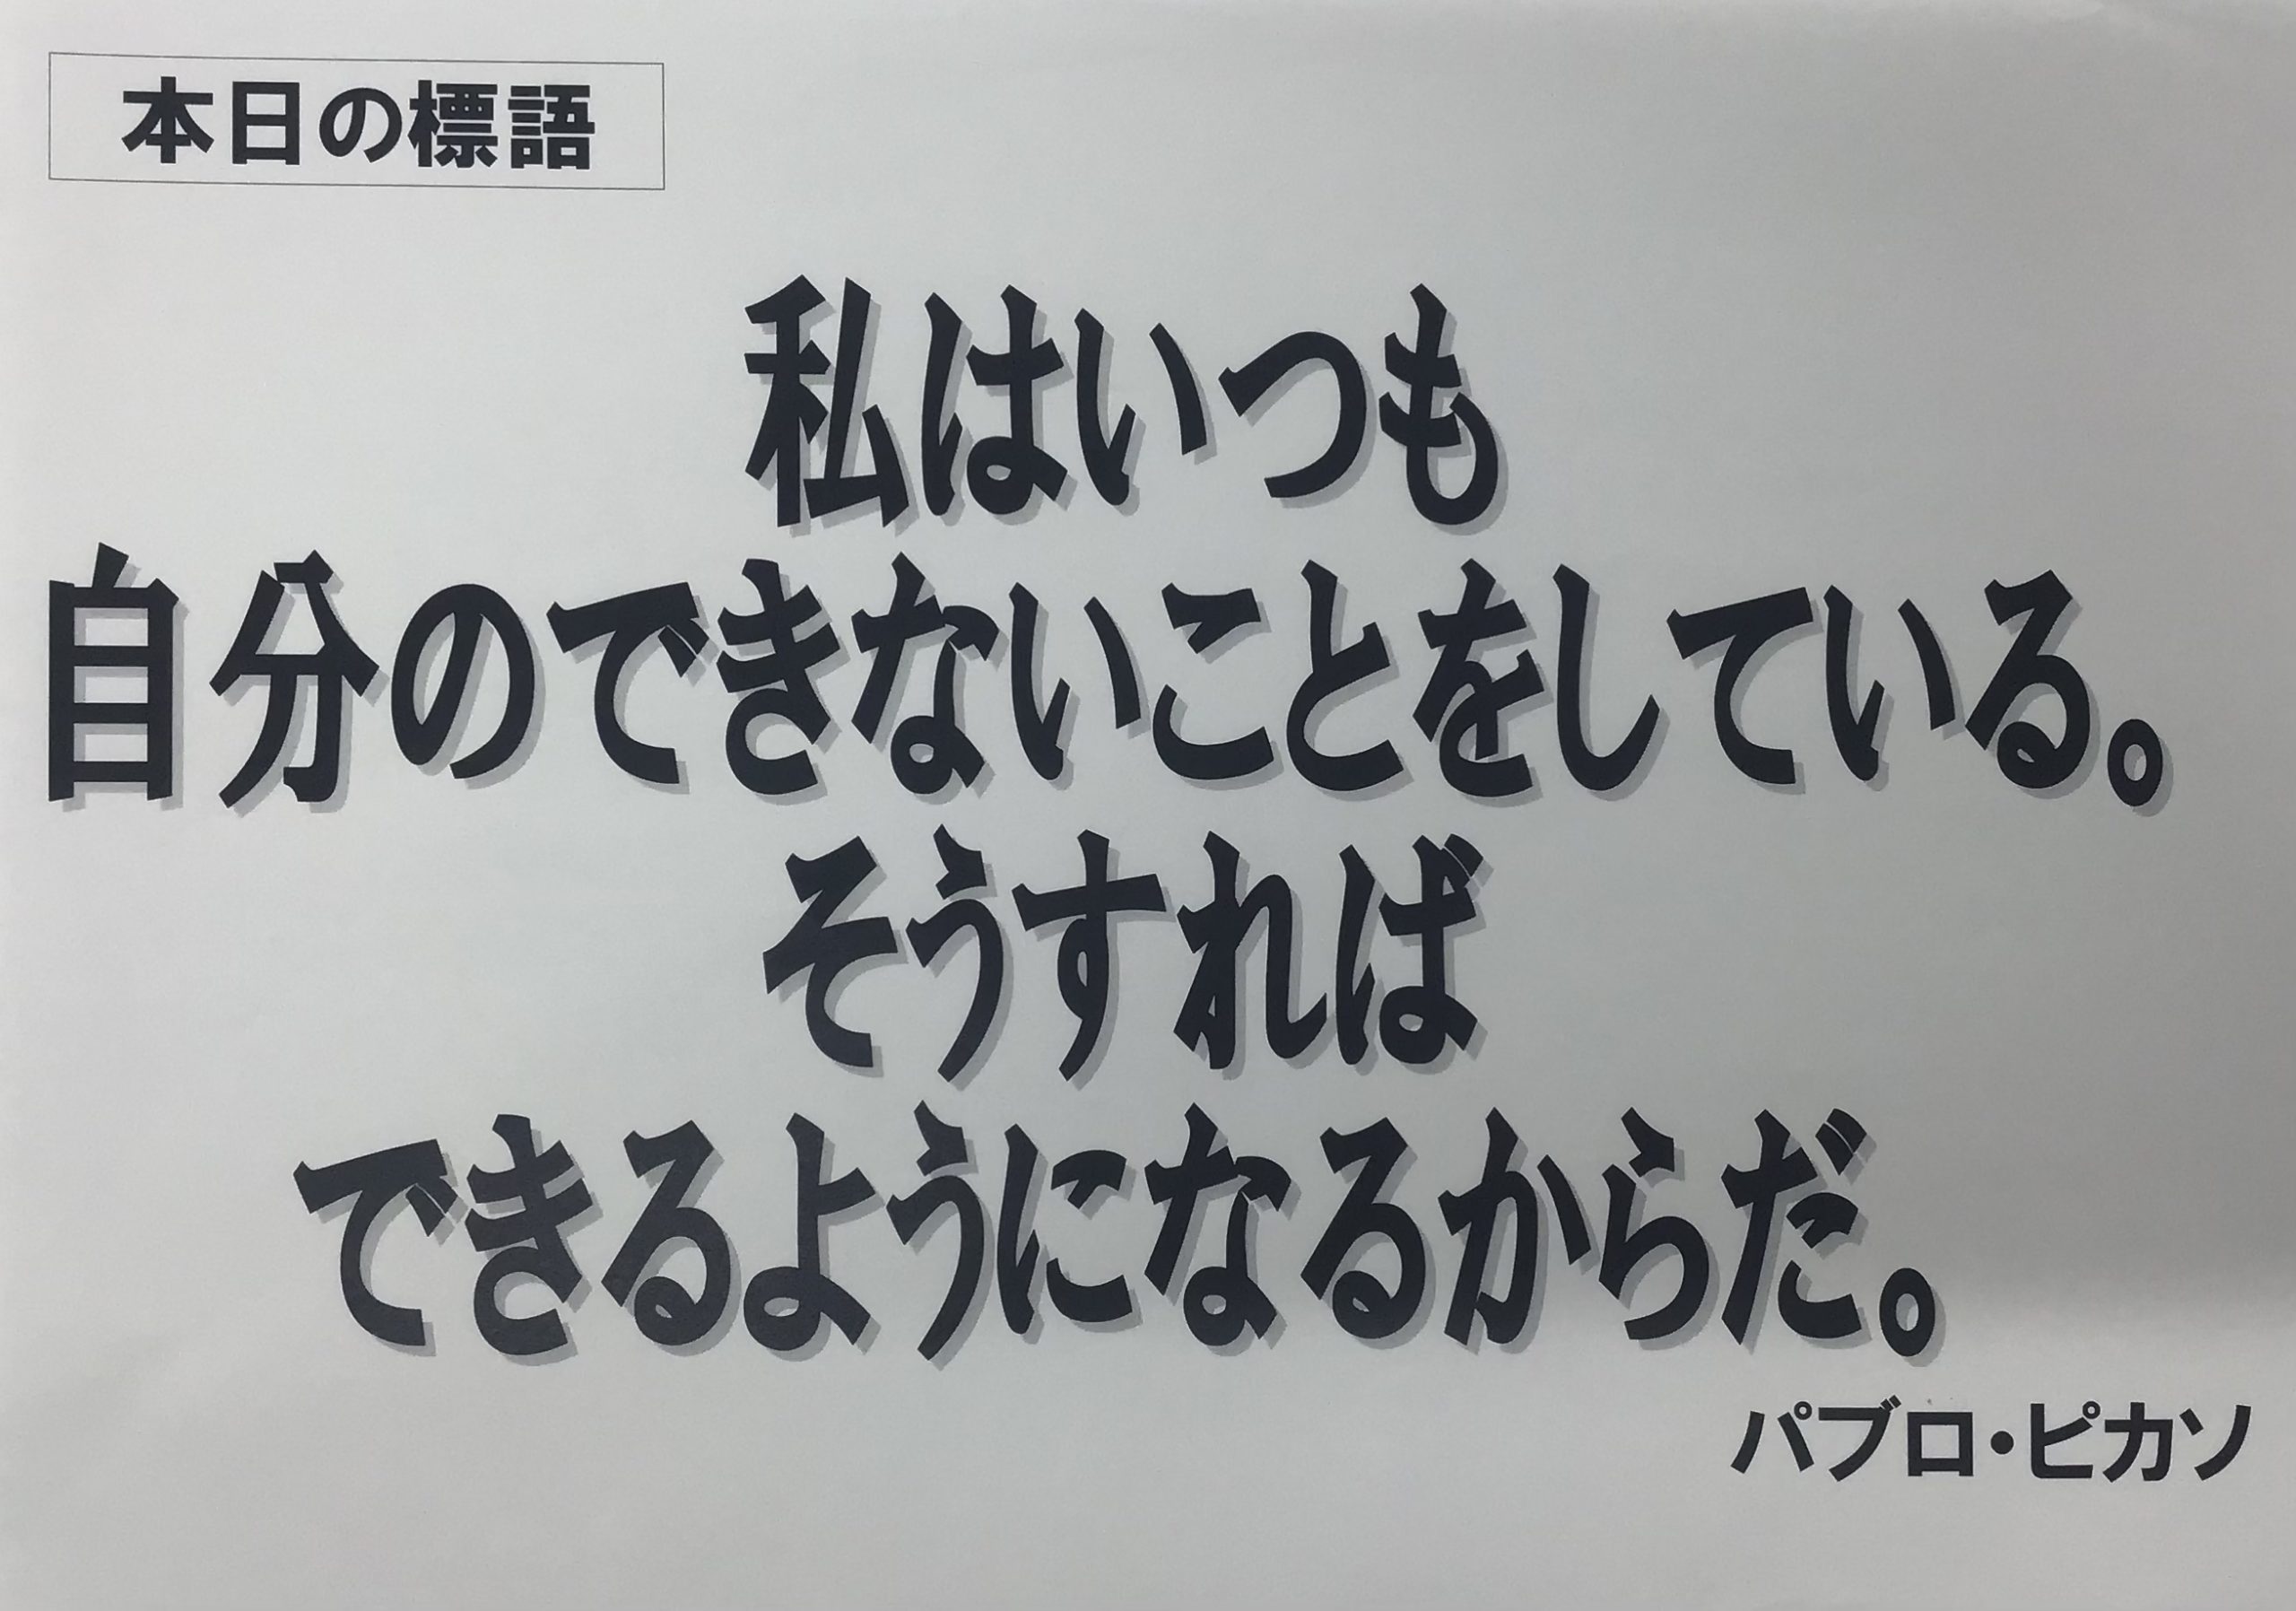 本日の標語
私はいつも
自分のできないことをしている。
そうすれば
できるようになるからだ。
パブロ・ピカソ